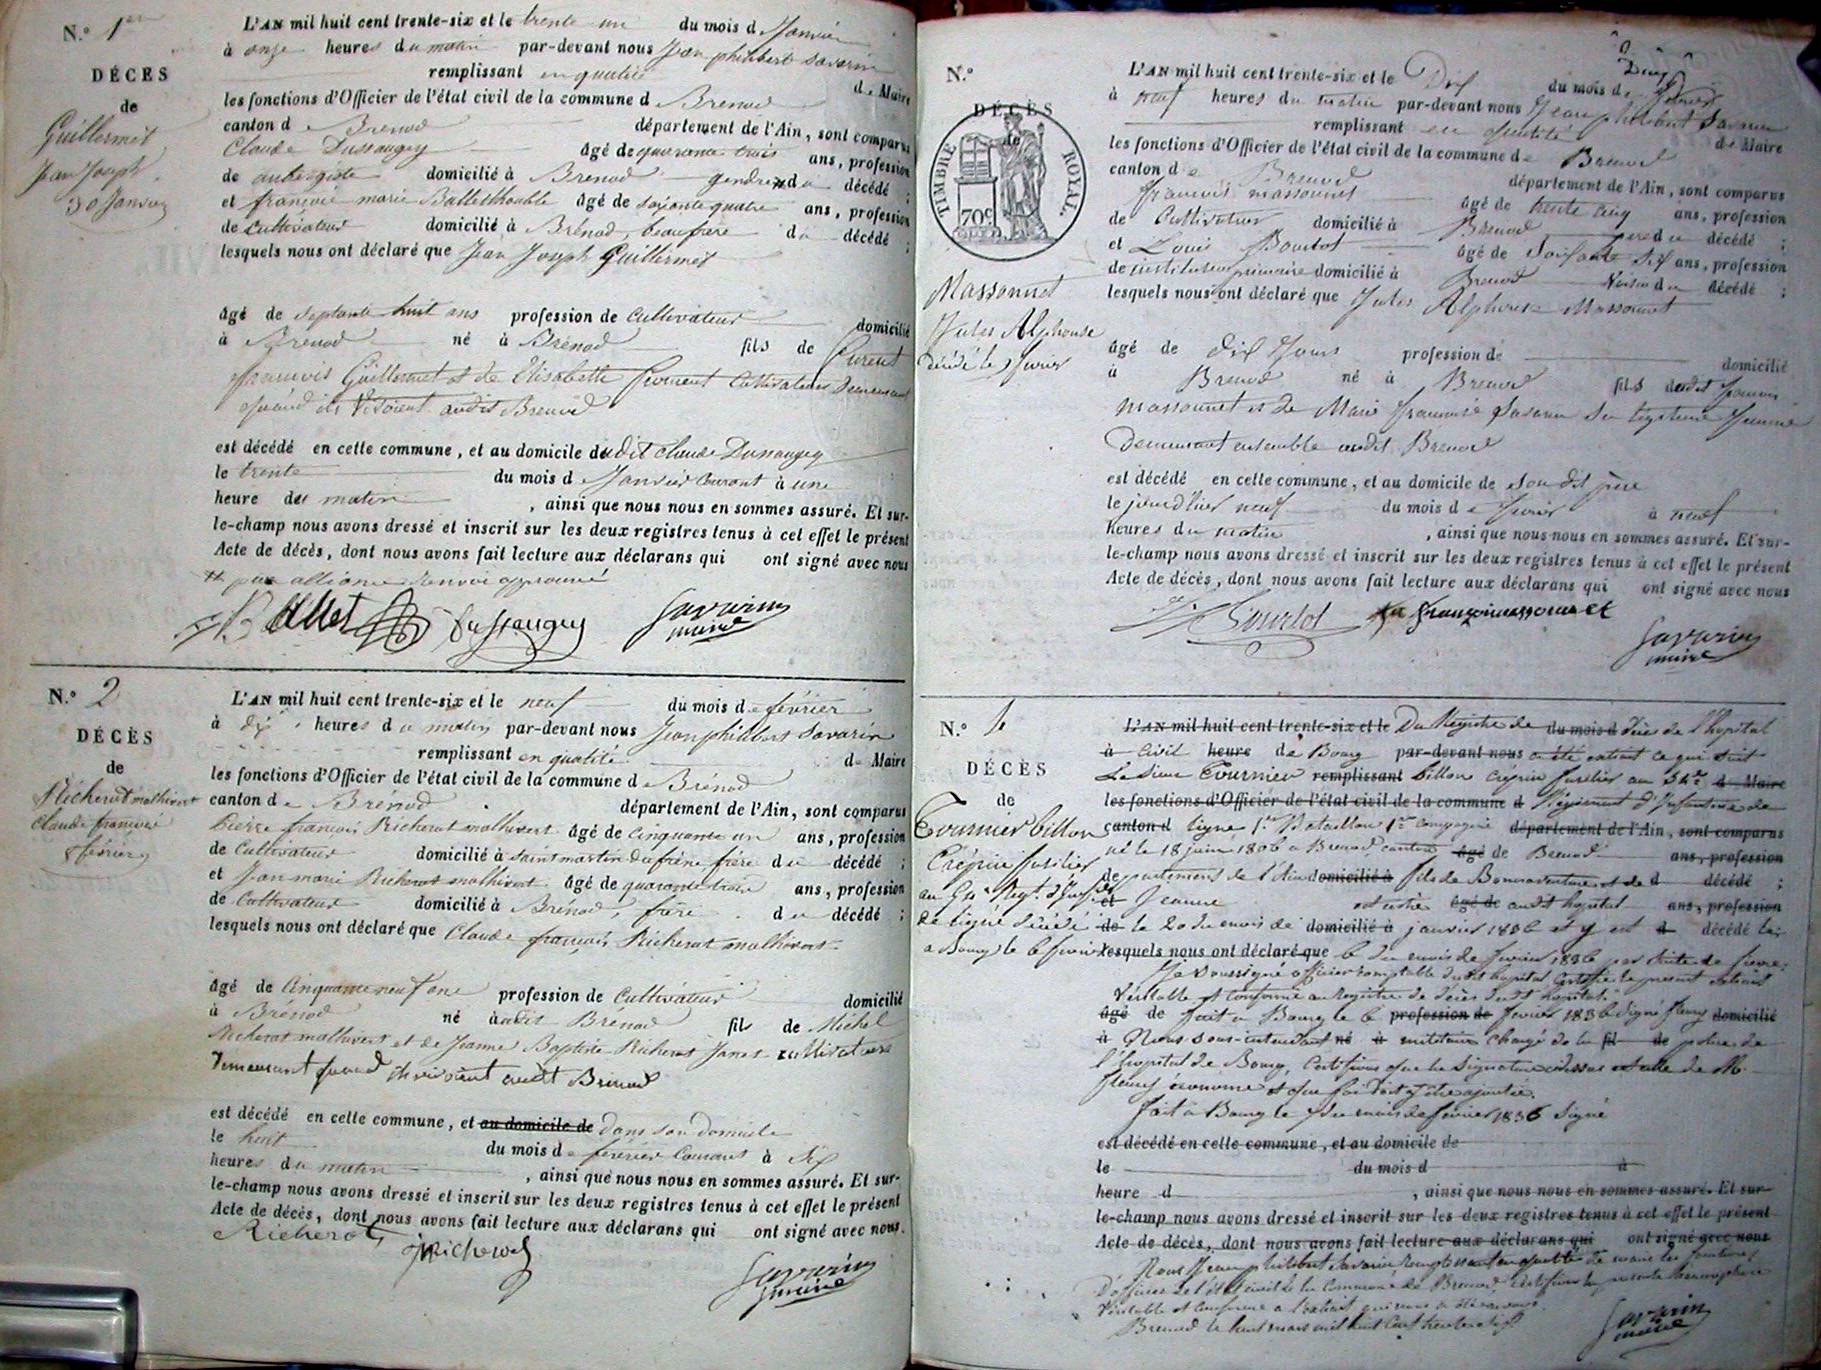 N.o 1er
DÉCÈS
de
Guillermet
Jean Joseph
30 Janvier
L'AN mil huit cent trente-six et le trente un du mois d Janvier
à onze heures du matin par-devant nous Jean philibert Savarin
remplissant en qualité de Maire
les fonctions d'Officier de l'état civil de la commune d Brenod
canton de Brenod département de l'Ain, sont comparus
Claude Dussaugey âgé de quarante trois ans, profession
de aubergiste domicilié à Brenod gendre du décédé ;
et françois marie Ballet âgé de soixante quatre ans, profession
de Cultivateur domicilié à Brénod, beaufrere du décédé ;
lesquels nous ont déclaré que Jean Joseph Guillermet
âgé de septante huit ans profession de Cultivateur domicilié
à Brénod né à Brénod fils de
francois Guillermet et de Elisabeth cultivateurs Demeurant
quand ils Vivoient audit Brenod
est décédé en cette commune, et au domicile dudit Claude Dussaugey
le trente du mois d Janvier Courant à une
heure du matin, ainsi que nous nous en sommes assuré. Et sur-
le-champ nous avons dressé et inscrit sur les deux registres tenus à cet effet le présent
Acte de décès, dont nous avons fait lecture aux déclarans qui ont signé avec nous
# par alliance Renvoi approuvé
Ballet Dussaugey Savarin
maire
N.o 2
DÉCÈS
de
Richerot malhivert
Claude francois
8 février
L'AN mil huit cent trente-six et le neuf du mois de février
à dix heures du matin par-devant nous Jean philibert Savarin
remplissant en qualité de Maire
les fonctions d'Officier de l'état civil de la commune de Brénod
canton de Brénod département de l'Ain, sont comparus
Pierre françois Richerot malhivert âgé de Cinquante un ans, profession
de Cultivateur domicilié à saint martin du frêne frère du décédé ;
et Jean marie Richerot malhivert âgé de quarante trois ans, profession
de Cultivateur domicilié à Brénod, frère du décédé ;
lesquels nous ont déclaré que Claude françois Richerot malhivert
âgé de Cinquante neuf ans profession de Cultivateur domicilié
à Brénod né audit Brénod fils de Michel
Richerot malhivert et de Jeanne Baptiste Richerot Janet cultivateurs
Demeurant quand ils vivoient audit Brénod
est décédé en cette commune, et au domicile de dans son domicile
le huit du mois de février Courant à six
heures du matin, ainsi que nous nous en sommes assuré. Et sur-
le-champ nous avons dressé et inscrit sur les deux registres tenus à cet effet le présent
Acte de décès, dont nous avons fait lecture aux déclarans qui ont signé avec nous.
Richerot Richerot
Savarin
maire
N.o
DÉCÈS
de
TIMBRE ROYAL.
70c
Massonnet
Jules Alphonse
décédé le 9 fevrier
L'AN mil huit cent trente-six et le Dix du mois de fevrier
à neuf heures du matin par-devant nous Jean philibert Savarin
remplissant en qualité de Maire
les fonctions d'Officier de l'état civil de la commune de Brenod
canton de Brenod département de l'Ain, sont comparus
francois massonnet âgé de trente cinq ans, profession
de Cultivateur domicilié à Brenod pere du décédé ;
et Louis Bourlot âgé de Soixante Six ans, profession
de instituteur primaire domicilié à Brenod Voisin du décédé ;
lesquels nous ont déclaré que Jules Alphonse Massonnet
âgé de Dix Jours profession de domicilié
à Brenod né à Brenod fils dudit francois
massonnet et de Marie francoise Savarin Sa legitime femme
Demeurant ensemble audit Brenod
est décédé en cette commune, et au domicile de son dit père
le jourd'hier neuf du mois de fevrier à neuf
heures du matin, ainsi que nous nous en sommes assuré. Et sur-
le-champ nous avons dressé et inscrit sur les deux registres tenus à cet effet le présent
Acte de décès, dont nous avons fait lecture aux déclarans qui ont signé avec nous
Bourlot françoi massonnet
Savarin
maire
N.o 4
DÉCÈS
de
Tournier billon
Crépin fusilier
au Regt d'Inf
de ligne décédé
a Bourg le 6 fevrier
L'AN mil huit cent trente-six et le Du Registre de du mois d décès de l'hopital
à Civil heure de Bourg par-devant nous a été extrait ce qui suit
Le Sieur Tournier remplissant billon crépin fusilier au d Maire
les fonctions d'Officier de l'état civil de la commune d Régiment d'Infanterie de
canton d ligne 1er Bataillon 1re compagnie département de l'Ain, sont comparus
né le 18 juin 1806 a Brenod canton âgé de Brenod ans, profession
departement de l'Ain domicilié à fils de Bonnaventure et de d décédé ;
et Jeanne est entré âgé de audit hopital ans, profession
de le 20 du mois de domicilié à janvier 1836 et y est d décédé le
lesquels nous ont déclaré que 6 du mois de fevrier 1836 par suite de fievre
Je Soussigné officier comptable dudit hopital Certifie le present extrait
Veritable et Conforme au Registre de décès dudit hopital
âgé de fait a Bourg le 6 profession de fevrier 1836 Signé fleury domicilié
à Nous sous-intendant né à militaire chargé de la fil de police de
l'hopital de Bourg, Certifions que la Signature cidessus est celle de Mr
fleury économe et que foi doit y être ajoutée.
fait a Bourg le du mois de fevrier 1836 Signé
est décédé en cette commune, et au domicile de
le du mois d à
heure d , ainsi que nous nous en sommes assuré. Et sur-
le-champ nous avons dressé et inscrit sur les deux registres tenus à cet effet le présent
Acte de décès, dont nous avons fait lecture aux déclarans qui ont signé avec nous
Nous Jean philibert Savarin remplissant en qualité de maire les fonctions
D'officier de l'état civil de la Commune de Brenod, Certifions la presente
Veritable et Conforme a l'extrait qui nous a été envoyé.
Brenod le huit mars mil huit Cent trente Six
Savarin
maire